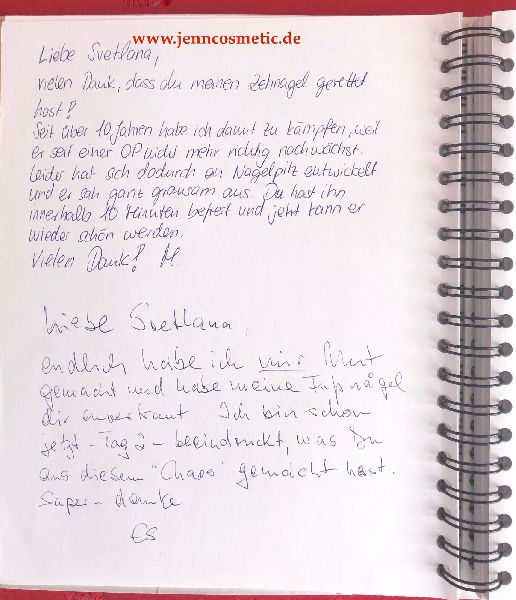 www.jenncosmetic.de
Liebe Svetlana,
vielen Dank, dass du meinen Zehnagel gerettet
hast!
Seit über 10 Jahren habe ich damit zu kämpfen, weil
er seit einer OP nicht mehr richtig nachwächst.
Leider hat sich dadurch ein Nagelpilz entwickelt
und er sah ganz grausam aus. Du hast ihn
innerhalb 10 Minuten befreit und jetzt kann er
wieder schön werden.
Vielen Dank! M.
Liebe Svetlana,
endlich habe ich mir Mut
gemacht und habe meine Fußnägel
dir anvertraut. Ich bin schon
jetzt - Tag 2 - beeindruckt, was Du
aus diesem "Chaos" gemacht hast.
Super - danke
ES